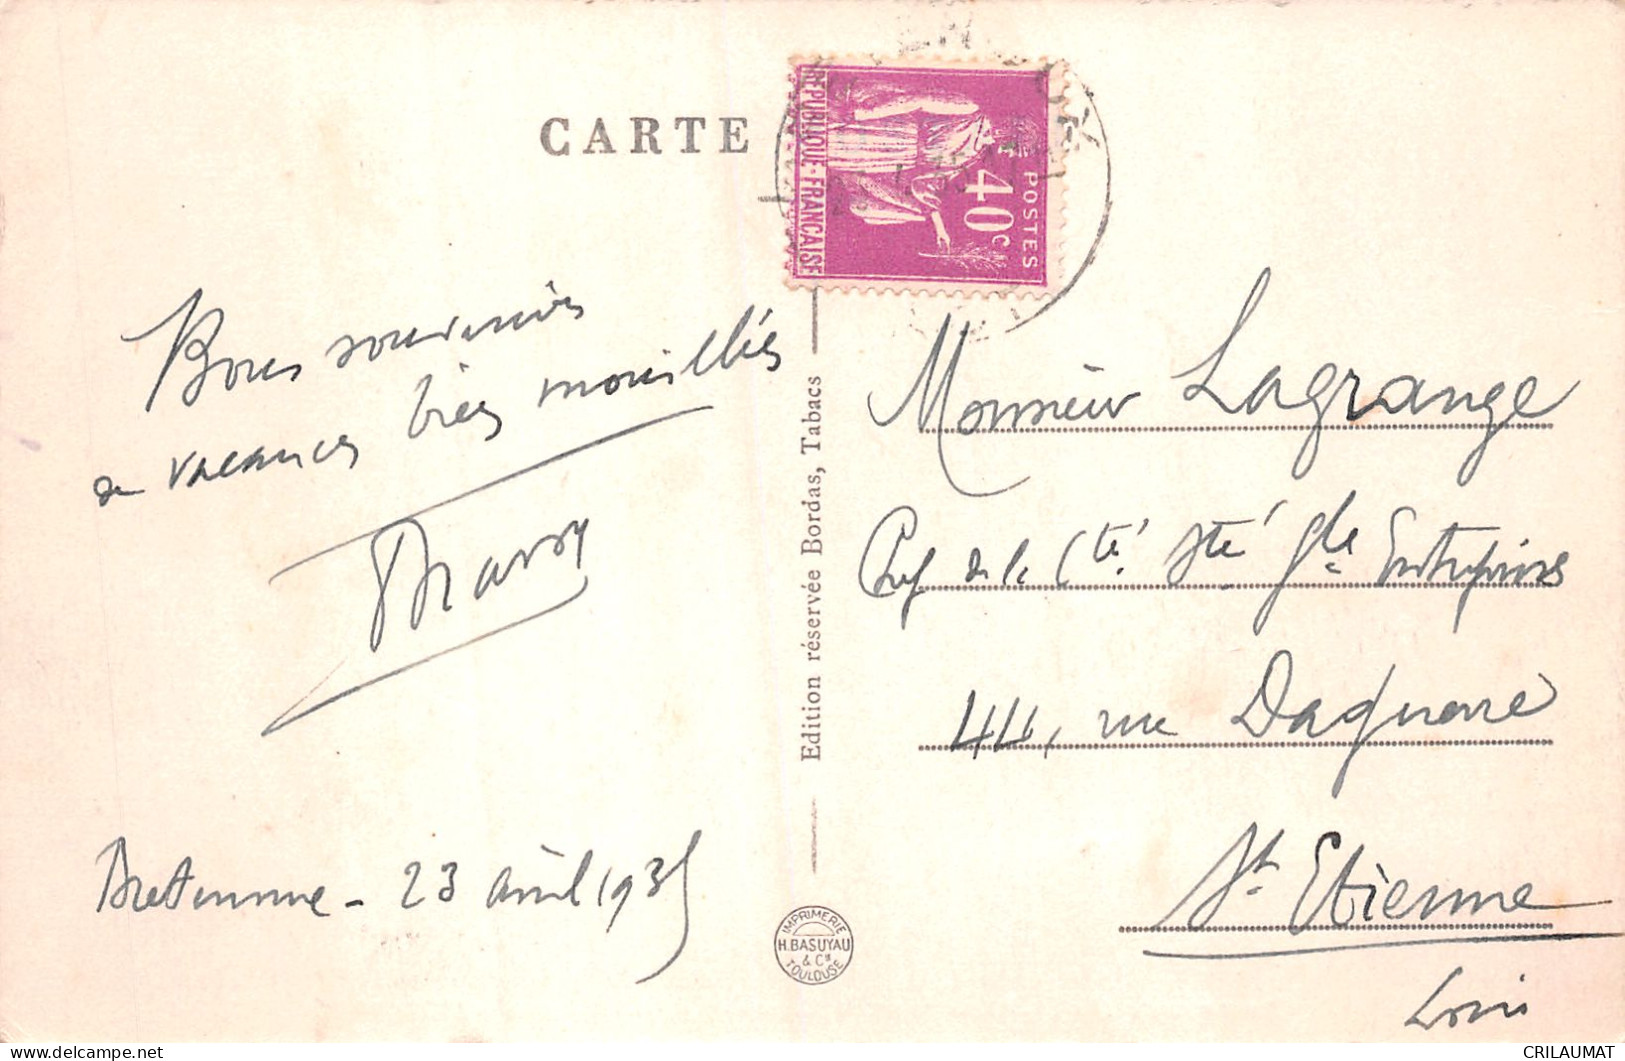 CARTE
REPUBLIQUE-FRANÇAISE
POSTES
40c
35
Bons souvenirs
de vacances bien mouillés
Bretenoux - 23 avril 1935
Edition réservée Bordas, Tabacs
IMPRIMERIE
H.BASUYAU
& Cie
TOULOUSE
Monsieur Lagrange
de la Cté. Sté Gle Entreprises
44, rue Daguerre
St. Etienne
Loire
CRILAUMAT